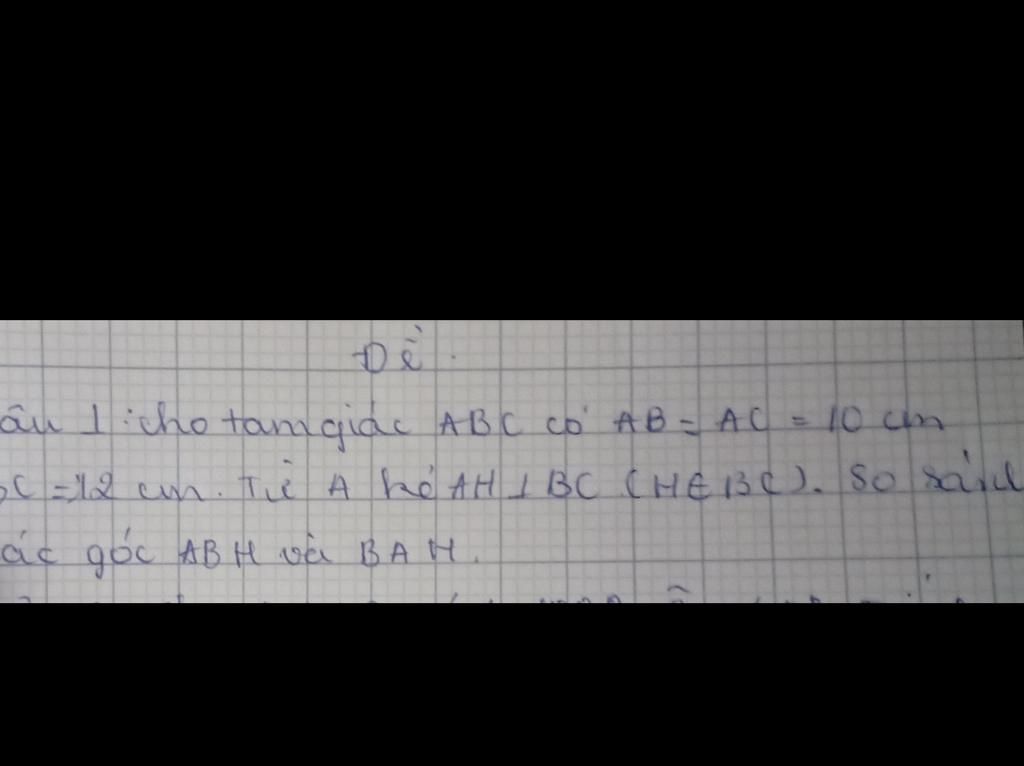 Đề.
âu 1: cho tam giác ABC có AB = AC = 10 cm
C = 12 cm. Từ A kẻ AH ⊥ BC (H ∈ BC). So sánh
ác góc ABH và BAH.